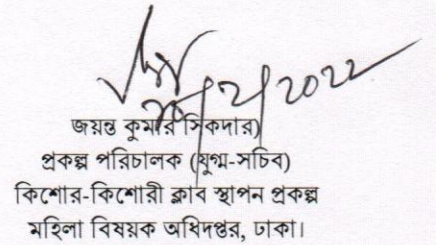 জয়ন্ত কুমার সিকদার)
প্রকল্প পরিচালক (যুগ্ম-সচিব)
কিশোর-কিশোরী ক্লাব স্থাপন প্রকল্প
মহিলা বিষয়ক অধিদপ্তর, ঢাকা।